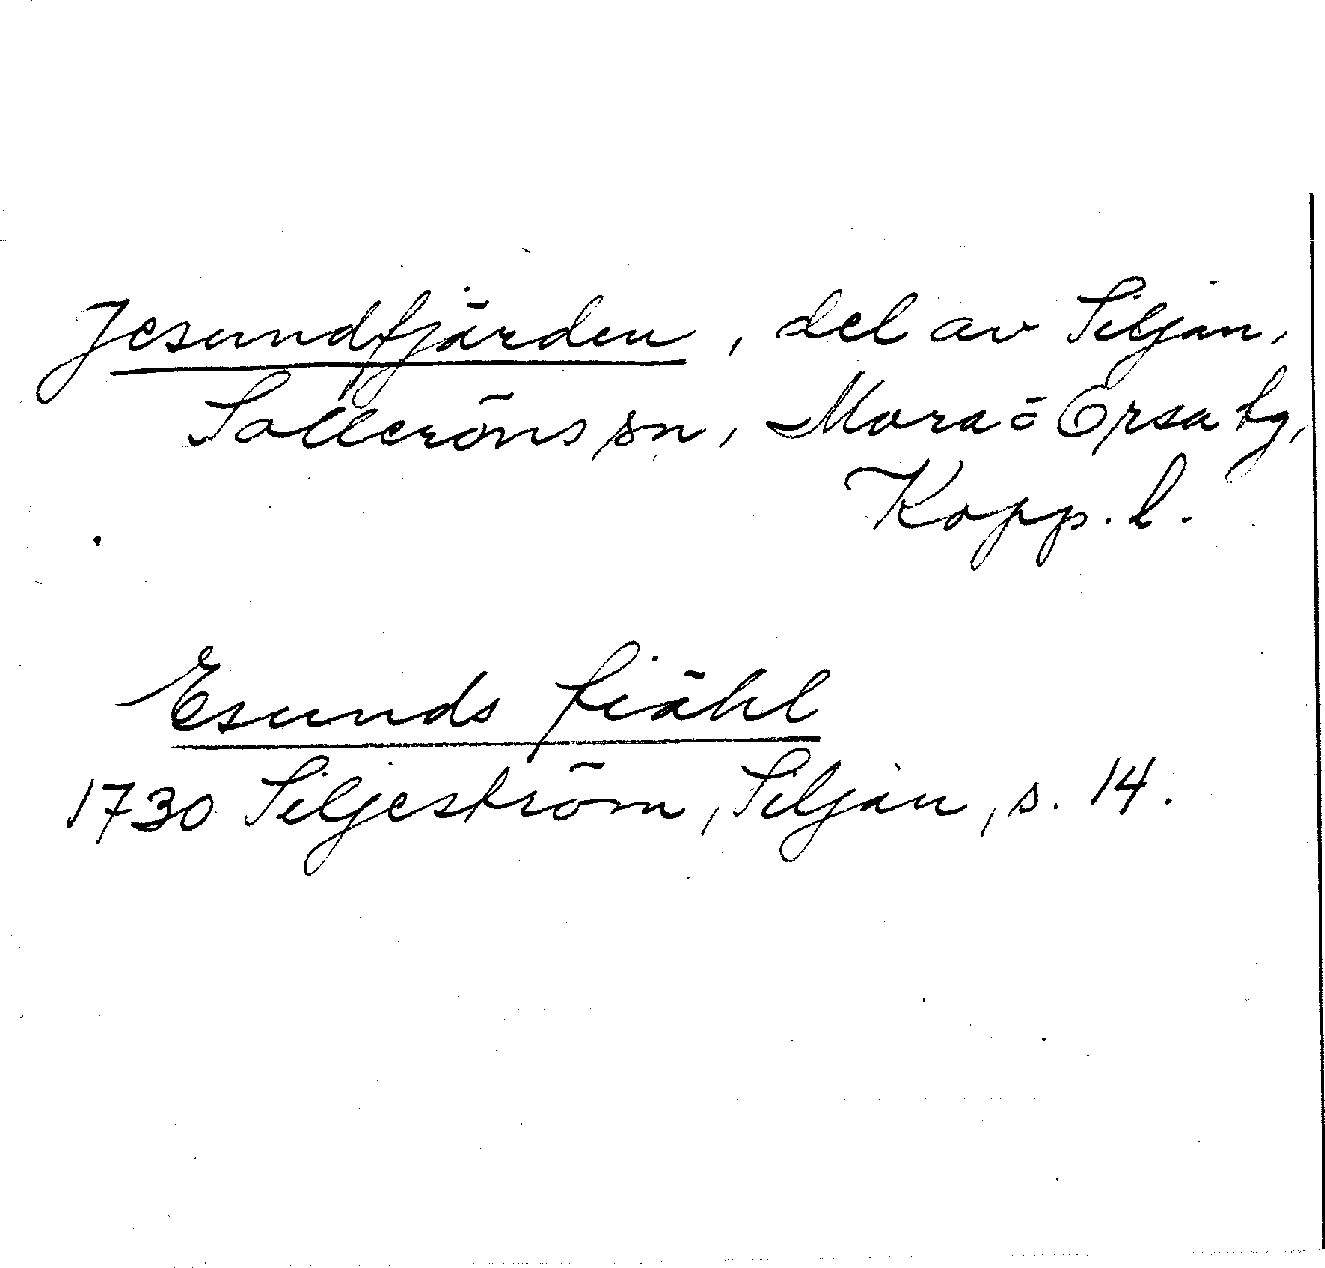 Jesundfjärden, del av Siljan,
Solleröns sn, Mora o Orsa tg,
Kopp. l.
Esunds fiähl
1730 Siljeström, Siljan, s. 14.